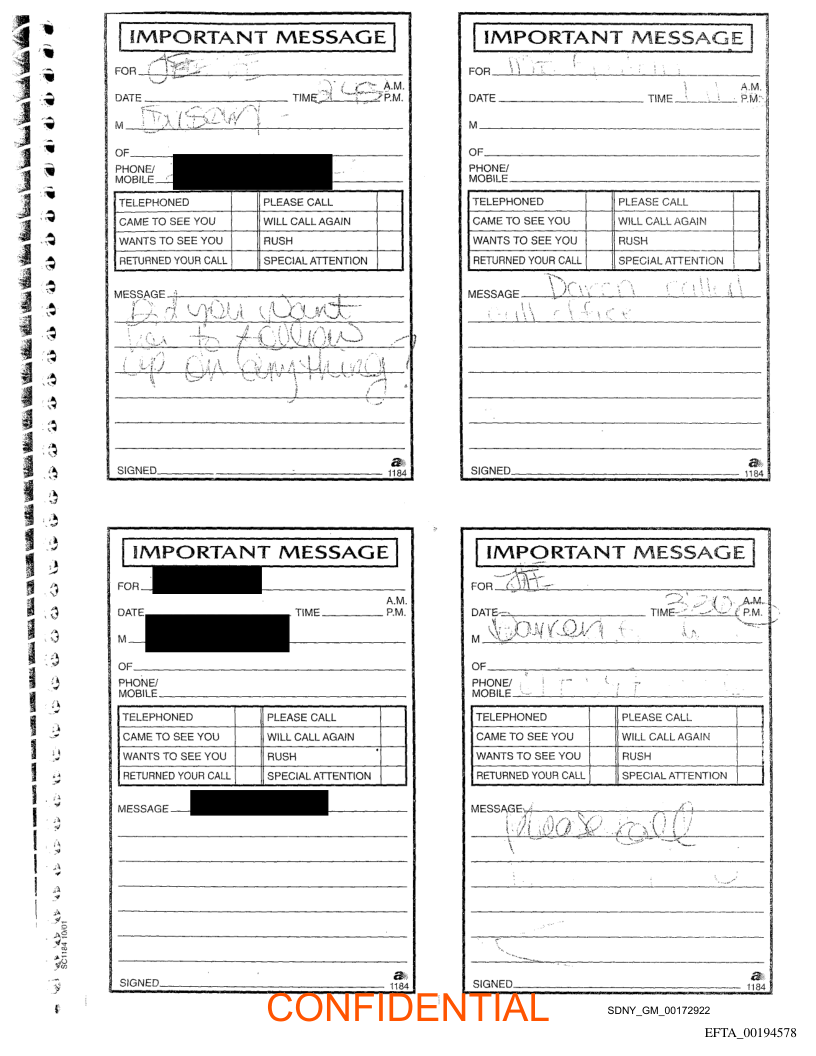 IMPORTANT MESSAGE
FOR
DATE TIME 2:45 A.M.
P.M.
M Susan
OF
PHONE/
MOBILE
TELEPHONED PLEASE CALL
CAME TO SEE YOU WILL CALL AGAIN
WANTS TO SEE YOU RUSH
RETURNED YOUR CALL SPECIAL ATTENTION
MESSAGE Did you want
her to follow
up on anything?
SIGNED
a
1184
IMPORTANT MESSAGE
FOR
DATE TIME A.M.
P.M.
M
OF
PHONE/
MOBILE
TELEPHONED PLEASE CALL
CAME TO SEE YOU WILL CALL AGAIN
WANTS TO SEE YOU RUSH
RETURNED YOUR CALL SPECIAL ATTENTION
MESSAGE Darren called
call office
SIGNED
a
1184
IMPORTANT MESSAGE
FOR
DATE TIME A.M.
P.M.
M
OF
PHONE/
MOBILE
TELEPHONED PLEASE CALL
CAME TO SEE YOU WILL CALL AGAIN
WANTS TO SEE YOU RUSH
RETURNED YOUR CALL SPECIAL ATTENTION
MESSAGE
SIGNED
a
1184
IMPORTANT MESSAGE
FOR JE
DATE TIME 3:20 A.M.
P.M.
M Darren
OF
PHONE/
MOBILE
TELEPHONED PLEASE CALL
CAME TO SEE YOU WILL CALL AGAIN
WANTS TO SEE YOU RUSH
RETURNED YOUR CALL SPECIAL ATTENTION
MESSAGE
please call
SIGNED
a
1184
SC1184 10/01
CONFIDENTIAL
SDNY_GM_00172922
EFTA_00194578